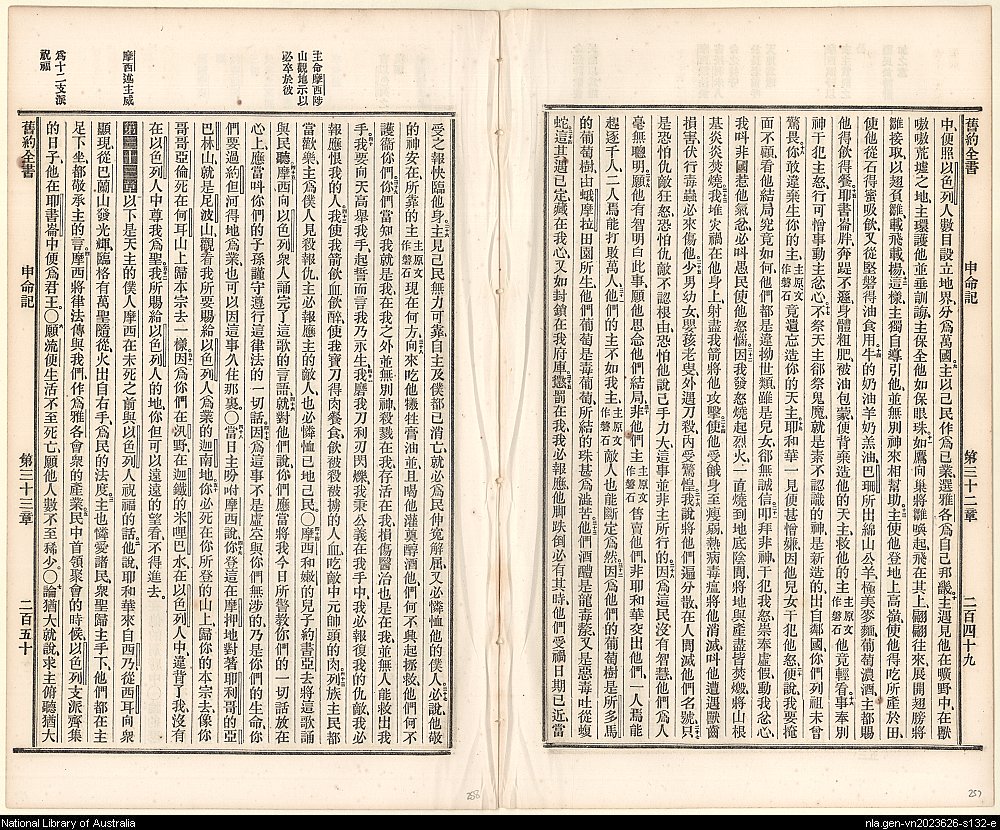 舊約全書 申命記 第三十二章 二百四十九
中便照以色列人數目設立地界分爲萬國主以己民作爲己業選雅各爲自己邦畿主遇見他在曠野中在獸
嗷嗷荒墟之地主環護他並垂訓誨主保全他如保眼珠如鷹向巢將雛喚起飛在其上翩翩往來展開翅膀將
雛接取以翅負雛載飛載揚這樣主獨自導引他並無別神來相幫助主使他登地上高嶺使他得吃所產於田
使他從石得蜜吸飲又從堅磐得油食用牛的奶油羊奶羔油巴珊所出綿山公羊極美麥麵葡萄濃酒主都賜
他得飲得餐耶書崙胖奔踶不遜身體粗肥被油包蒙便背棄造他的天主救他的主主原文作磐石他竟輕看事奉別
神干犯主怒行可憎事動主忿心不祭天主卻祭鬼魔就是素不認識的神是新造的出自鄰國你們列祖未曾
驚畏你敢違棄生你的主主原文作磐石竟遺忘造你的天主耶和華一見便甚憎嫌因他兒女干犯他怒便說我要掩
面不顧看他結局究竟如何他們都是違拗世類雖是兒女卻無誠信叩拜非神干犯我怒崇奉虛假動我忿心
我叫非國惹他氣忿必叫愚民使他怒惱因我發怒燒起烈火一直燒到地底陰間將地與產盡皆焚燬將山根
基炎炎焚燒我堆灾禍在他身上射盡我箭將他攻擊使他受餓身至瘦弱熱病毒瘟將他消滅叫他遭遇獸齒
損害伏行毒蟲必來傷他少男幼女嬰孩老叟外遇刀殺內受驚惶我說將他們遍分散在人間滅他們名號只
是恐怕仇敵狂怒恐怕仇敵不認根由恐怕他說手力大這事並非主所行的因爲這民沒有智慧他們爲人
毫無聰明願他有智明白此事願他思念他們結局非他們主主原文作磐石售賣他們非耶和華交出他們一人焉能
趕逐千人二人焉能打敗萬人他們的主不如我主主原文作磐石我們敵人也能斷定爲然因爲他們的葡萄樹是所多馬
的葡萄樹由蛾摩拉田園所生他們葡萄是毒葡萄所結的珠甚爲澁苦他們酒醴是龍毒漦又是惡毒吐從蝮
蛇這其週已定藏在我心又如封鎖在我府庫懲罰在我我必報應他腳跌倒必有其時他們受禍日期已近當
受之報快臨他身主見己民無力可靠自主及僕都已消亡就必爲民伸寃解屈又必憐恤他的僕人必說他敬
的神安在所靠的主主原文作磐石現在何方向來吃他犧牲膏油並且喝他灌奠醇酒他們何不興起拯救他們何不
護衛你們你們當知我就是我在我之外並無別神殺戮在我存活在我損傷醫治也是在我並無人能救出我
手我要向天高舉我手起誓而言我乃永生我磨我刀利刃閃爍我秉公義在我手中我必報復我的仇敵我必
報應恨我的人我使我箭飲血飲醉使我寶刀得肉餐食飲被殺被擄的人血吃敵中元帥頭的肉列族主民都
當歡樂主爲僕人見殺報仇主必報應主的敵人也必憐恤己地己民〇摩西和嫩的兒子約書亞去將這歌誦
與民聽摩西向以色列衆人誦完了這歌的言語就對他們說你們應當將我今日所警教你們的一切話放在
心上應當叫你們的子孫謹守遵行這律法的一切話因爲這事不是虛空與你們無涉的乃是你們的生命你
們要過約但河得地爲業也可以因這事久住那裏〇當日主吩咐摩西說你登這在摩押地對著耶利哥的亞
巴林山就是尼波山觀看我所要賜給以色列人爲業的迦南地你必死在你所登的山上歸你的本宗去像你
哥哥亞倫死在何耳山上歸本宗去一樣因爲你們在汛野在迦鐵的米哩巴水在以色列人中違背了我沒有
在以色列人中尊我爲聖我所賜給以色列人的地你但可以遠遠的望看不得進去
第三十三章以下是天主的僕人摩西在未死之前與以色列人祝福的話他說耶和華來自西乃從西耳向衆
顯現從巴蘭山發光輝臨格有萬聖隨從火出自右手爲民的法度主也憐愛諸民衆聖歸主手下他們都在主
足下坐都敬承主的言摩西將律法傳與我們作爲雅各會衆的產業民中首領聚會的時候以色列支派齊集
的日子他在耶書崙中便爲君王〇願流便生活不至死亡願他人數不至稀少〇論猶大就說求主俯聽猶大
舊約全書 申命記 第三十三章 二百五十
主命摩西陟
山觀地示以
必卒於彼
摩西述主威
爲十二支派
祝福
257
258
National Library of Australia
nla.gen-vn2023626-s132-e